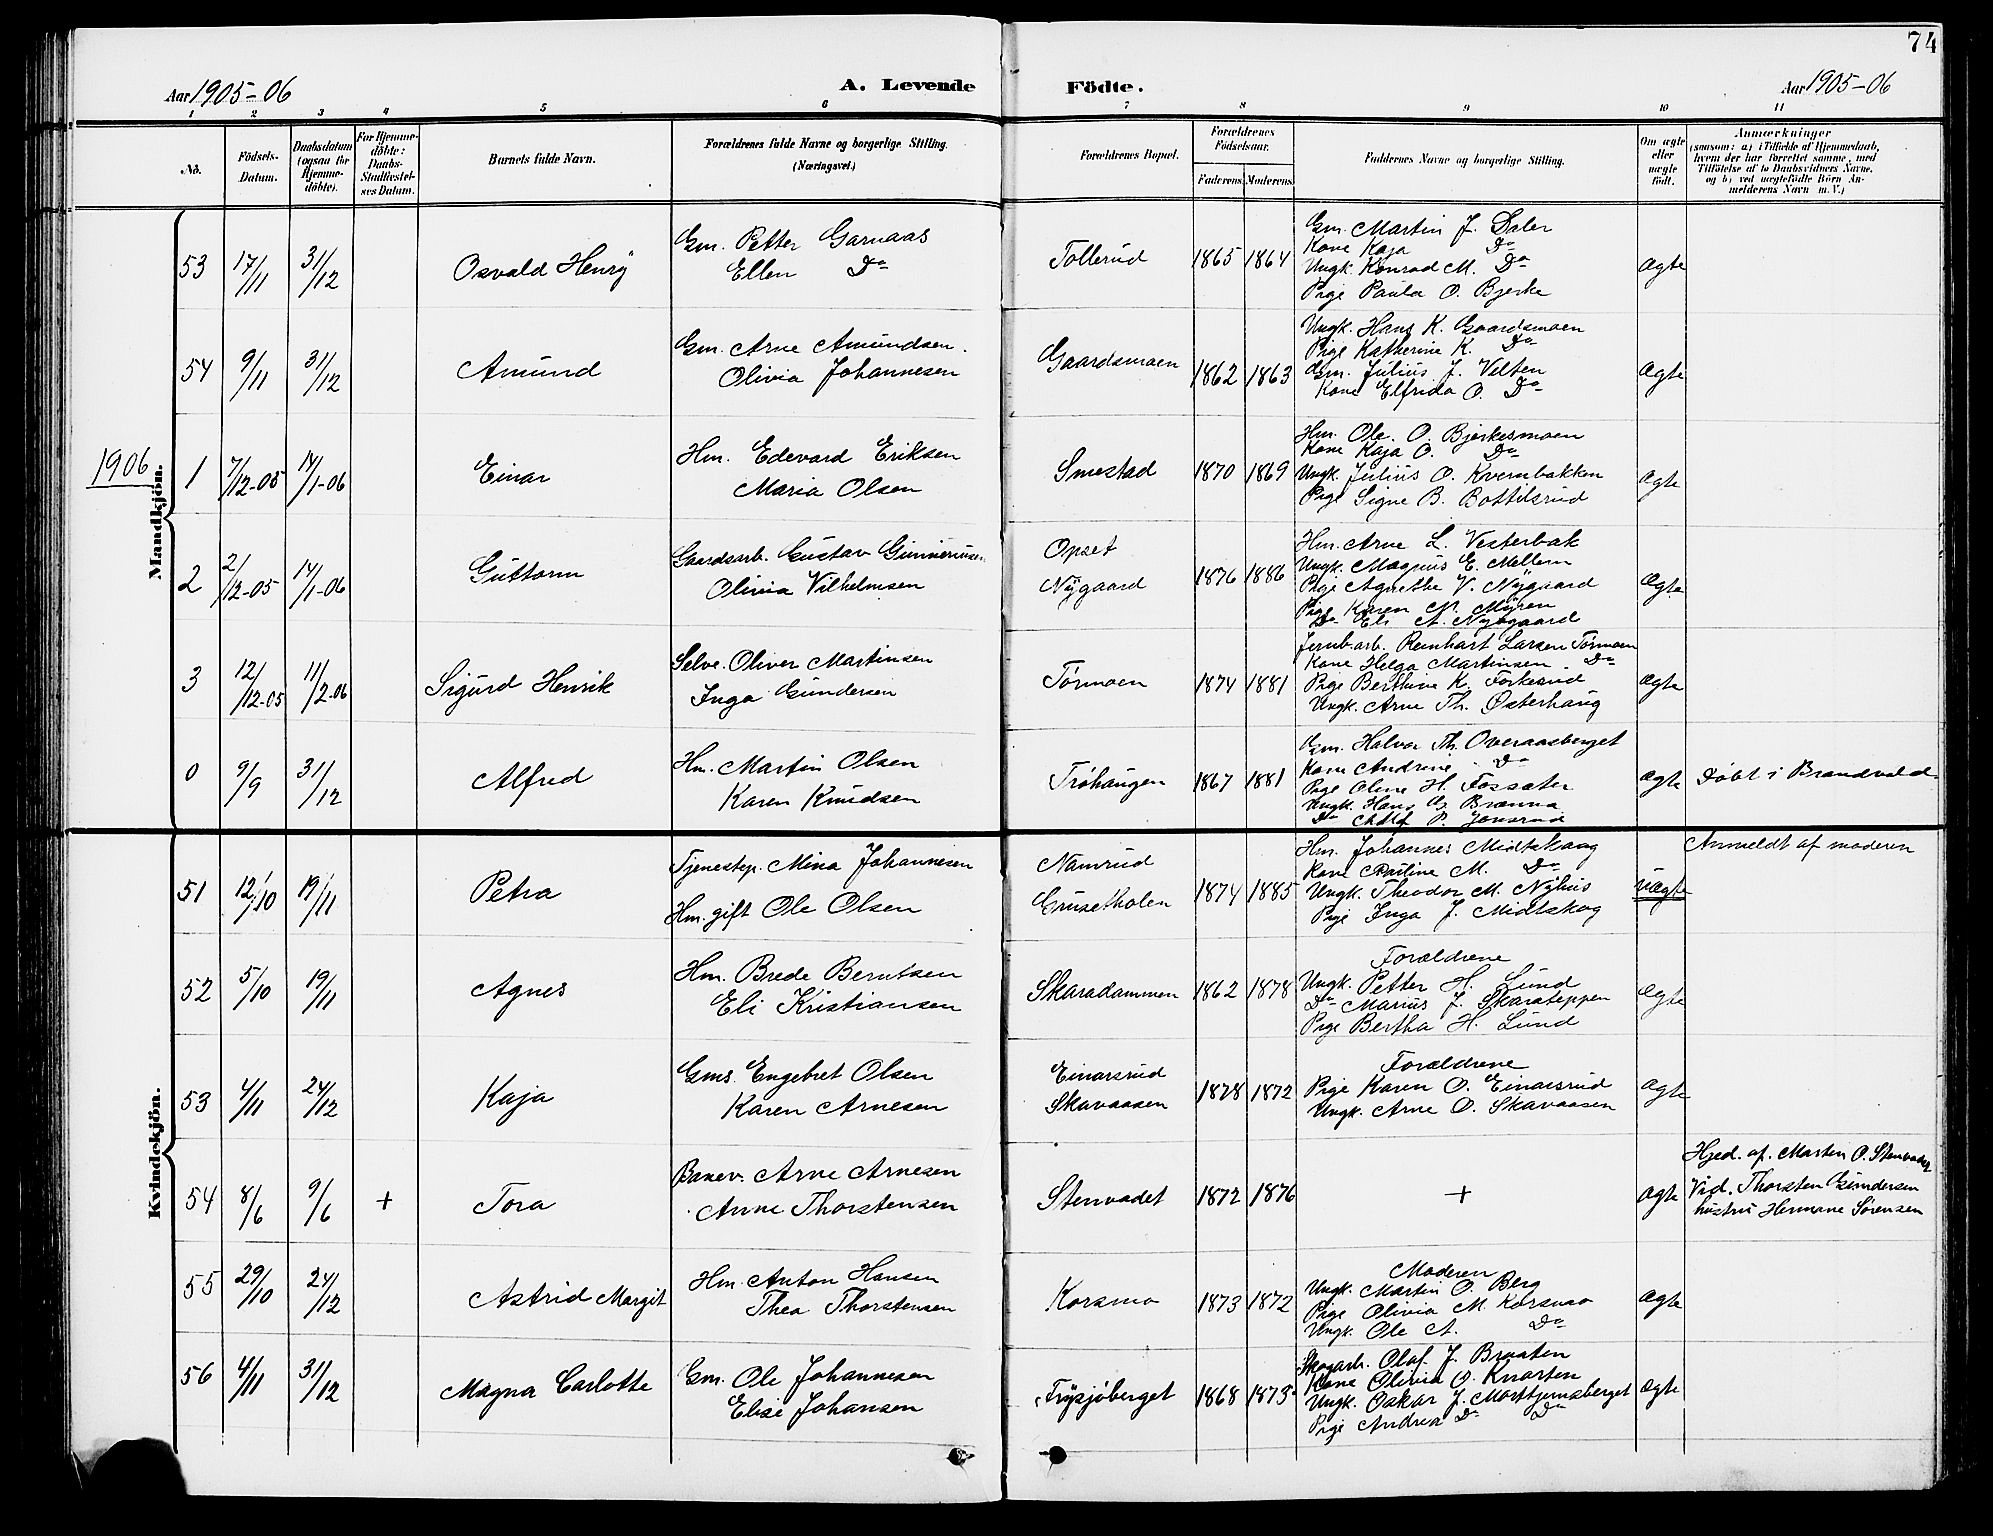 74
Aar 1905-06
A. Levende Födte.
Aar 1905-06
1 2 3 4 5 6 7 8 9 10 11
No.
Födsels-Datum.
Daabsdatum (ogsaa for Hjemme-döbte).
For Hjemme-döbte: Daabs-Stadfæstel-ses Datum.
Barnets fulde Navn.
Forældrenes fulde Navne og borgerlige Stilling. (Næringsvei.)
Forældrenes Bopæl.
Forældrenes Födselsaar.
Faderens Moderens
Faddernes Navne og borgerlige Stilling.
Om ægte eller uægte födt.
Anmærkninger
(saasom: a) i Tilfælde af Hjemmedaab, hvem der har forrettet samme, med Tilföielse af to Daabsvidners Navne, og b) ved uægtefödte Börn An-melderens Navn m. V.)
Mandkjön.
53 17/11 31/12 Osvald Henrÿ
Gm. Petter Garnaas
Ellen Do
Tollerud 1865 1864
Gm. Martin J. Daler
Kone Kaja Do
Ungk. Konrad M. Do
Pige Paula O. Bjerke
Ægte
54 9/11 31/12 Amund
Gm. Arne Amundsen.
Olivia Johannesen
Gaardsmoen 1862 1863
Ungk. Hans K. Gaardsmoen
Pige Katherine K. Do
Gm. Julius J. Velten
Kone Elfrida O. Do
Ægte
1906
1 7/12-05 14/1-06 Einar
Hm. Edevard Eriksen
Maria Olsen
Smestad 1870 1869
Hm. Ole. O. Bjerkesmoen
Kone Kaja O. Do
Ungk. Julius O. Kvernbakken
Pige Signe B. Bottilsrud
Ægte
2 2/12-05 14/1-06 Guttorm
Gaardsarb. Gustav Gunneriusen.
Olivia Vilhelmsen
Opset
Nÿgaard 1876 1886
Hm. Arne L. Vesterbak
Ungk. Magnus E. Mellem
Pige Agnethe V. Nÿgaard
Pige Karen M. Mÿren
Do Eli A. Nygaard
Ægte
3 12/12-05 11/2-06 Sigurd Henrik
Selve. Oliver Martinsen
Inga Gundersen
Tørmoen 1874 1881
Jernb.arb. Reinhart Larsen Tørmoen
Kone Helga Martinsen. Do
Pige Berthine K. Forkerud
Ungk. Arne Th. Østerhaug
Ægte
0 9/9 31/12 Alfred
Hm. Martin Olsen
Karen Knudsen
Trøhaugen 1867 1881
Gm. Halvor Th. Overaasberget
Kone Andrine Do
Pige Oline H. Fossæter
Ungk. Hans G. Brænna
Do Adolf P. Jonsrud
Ægte
Døbt i Brandval
Kvindekjön.
51 12/10 19/11 Petra
Tjenestep. Mina Johannesen
Hm. gift Ole Olsen
Namrud
Grusetkolen 1874 1885
Hm. Johannes Midtskaug
Kone Pauline M. Do
Ungk. Theodor M. Nÿhus
Pige Inga J. Midtskog
Uægte
Anmeldt af moderen
52 5/10 19/11 Agnes
Hm. Brede Berntsen
Eli Kristiansen
Skaradammen 1862 1878
Forældrene
Ungk. Petter H. Lund
Do Marius J. Skarateppen
Pige Bertha H. Lund
Ægte
53 4/11 24/12 Kaja
Gms. Engebret Olsen
Karen Arnesen
Einarsrud
Skavaasen 1878 1872
Forældrene
Pige Karen O. Einarsrud
Ungk. Arne O. Skavaasen
Ægte
54 8/6 9/6 + Tora
Banev. Arne Arnesen
Anne Thorstensen
Stenvadet 1872 1876
+
Ægte
Hjed. af. Martin O. Stenvadet
Vid. Thorsten Gundersen
hustru Hermane Sørensen
55 29/10 24/12 Astrid Margit
Hm. Anton Hansen
Thea Thorstensen
Korsmo 1873 1872
Moderen
Ungk. Martin O. Berg
Pige Olivia M. Korsmo
Ungk. Ole A. Do
Ægte
56 4/11 31/12 Magna Carlotte
Gm. Ole Johannesen
Elise Johansen
Frysjøberget 1868 1873
Skogarb. Olaf. J. Braaten
Kone Olivia O. Knarten
Ungk. Oskar J. Morttjernsberget
Pige Andrea Do Do
Ægte